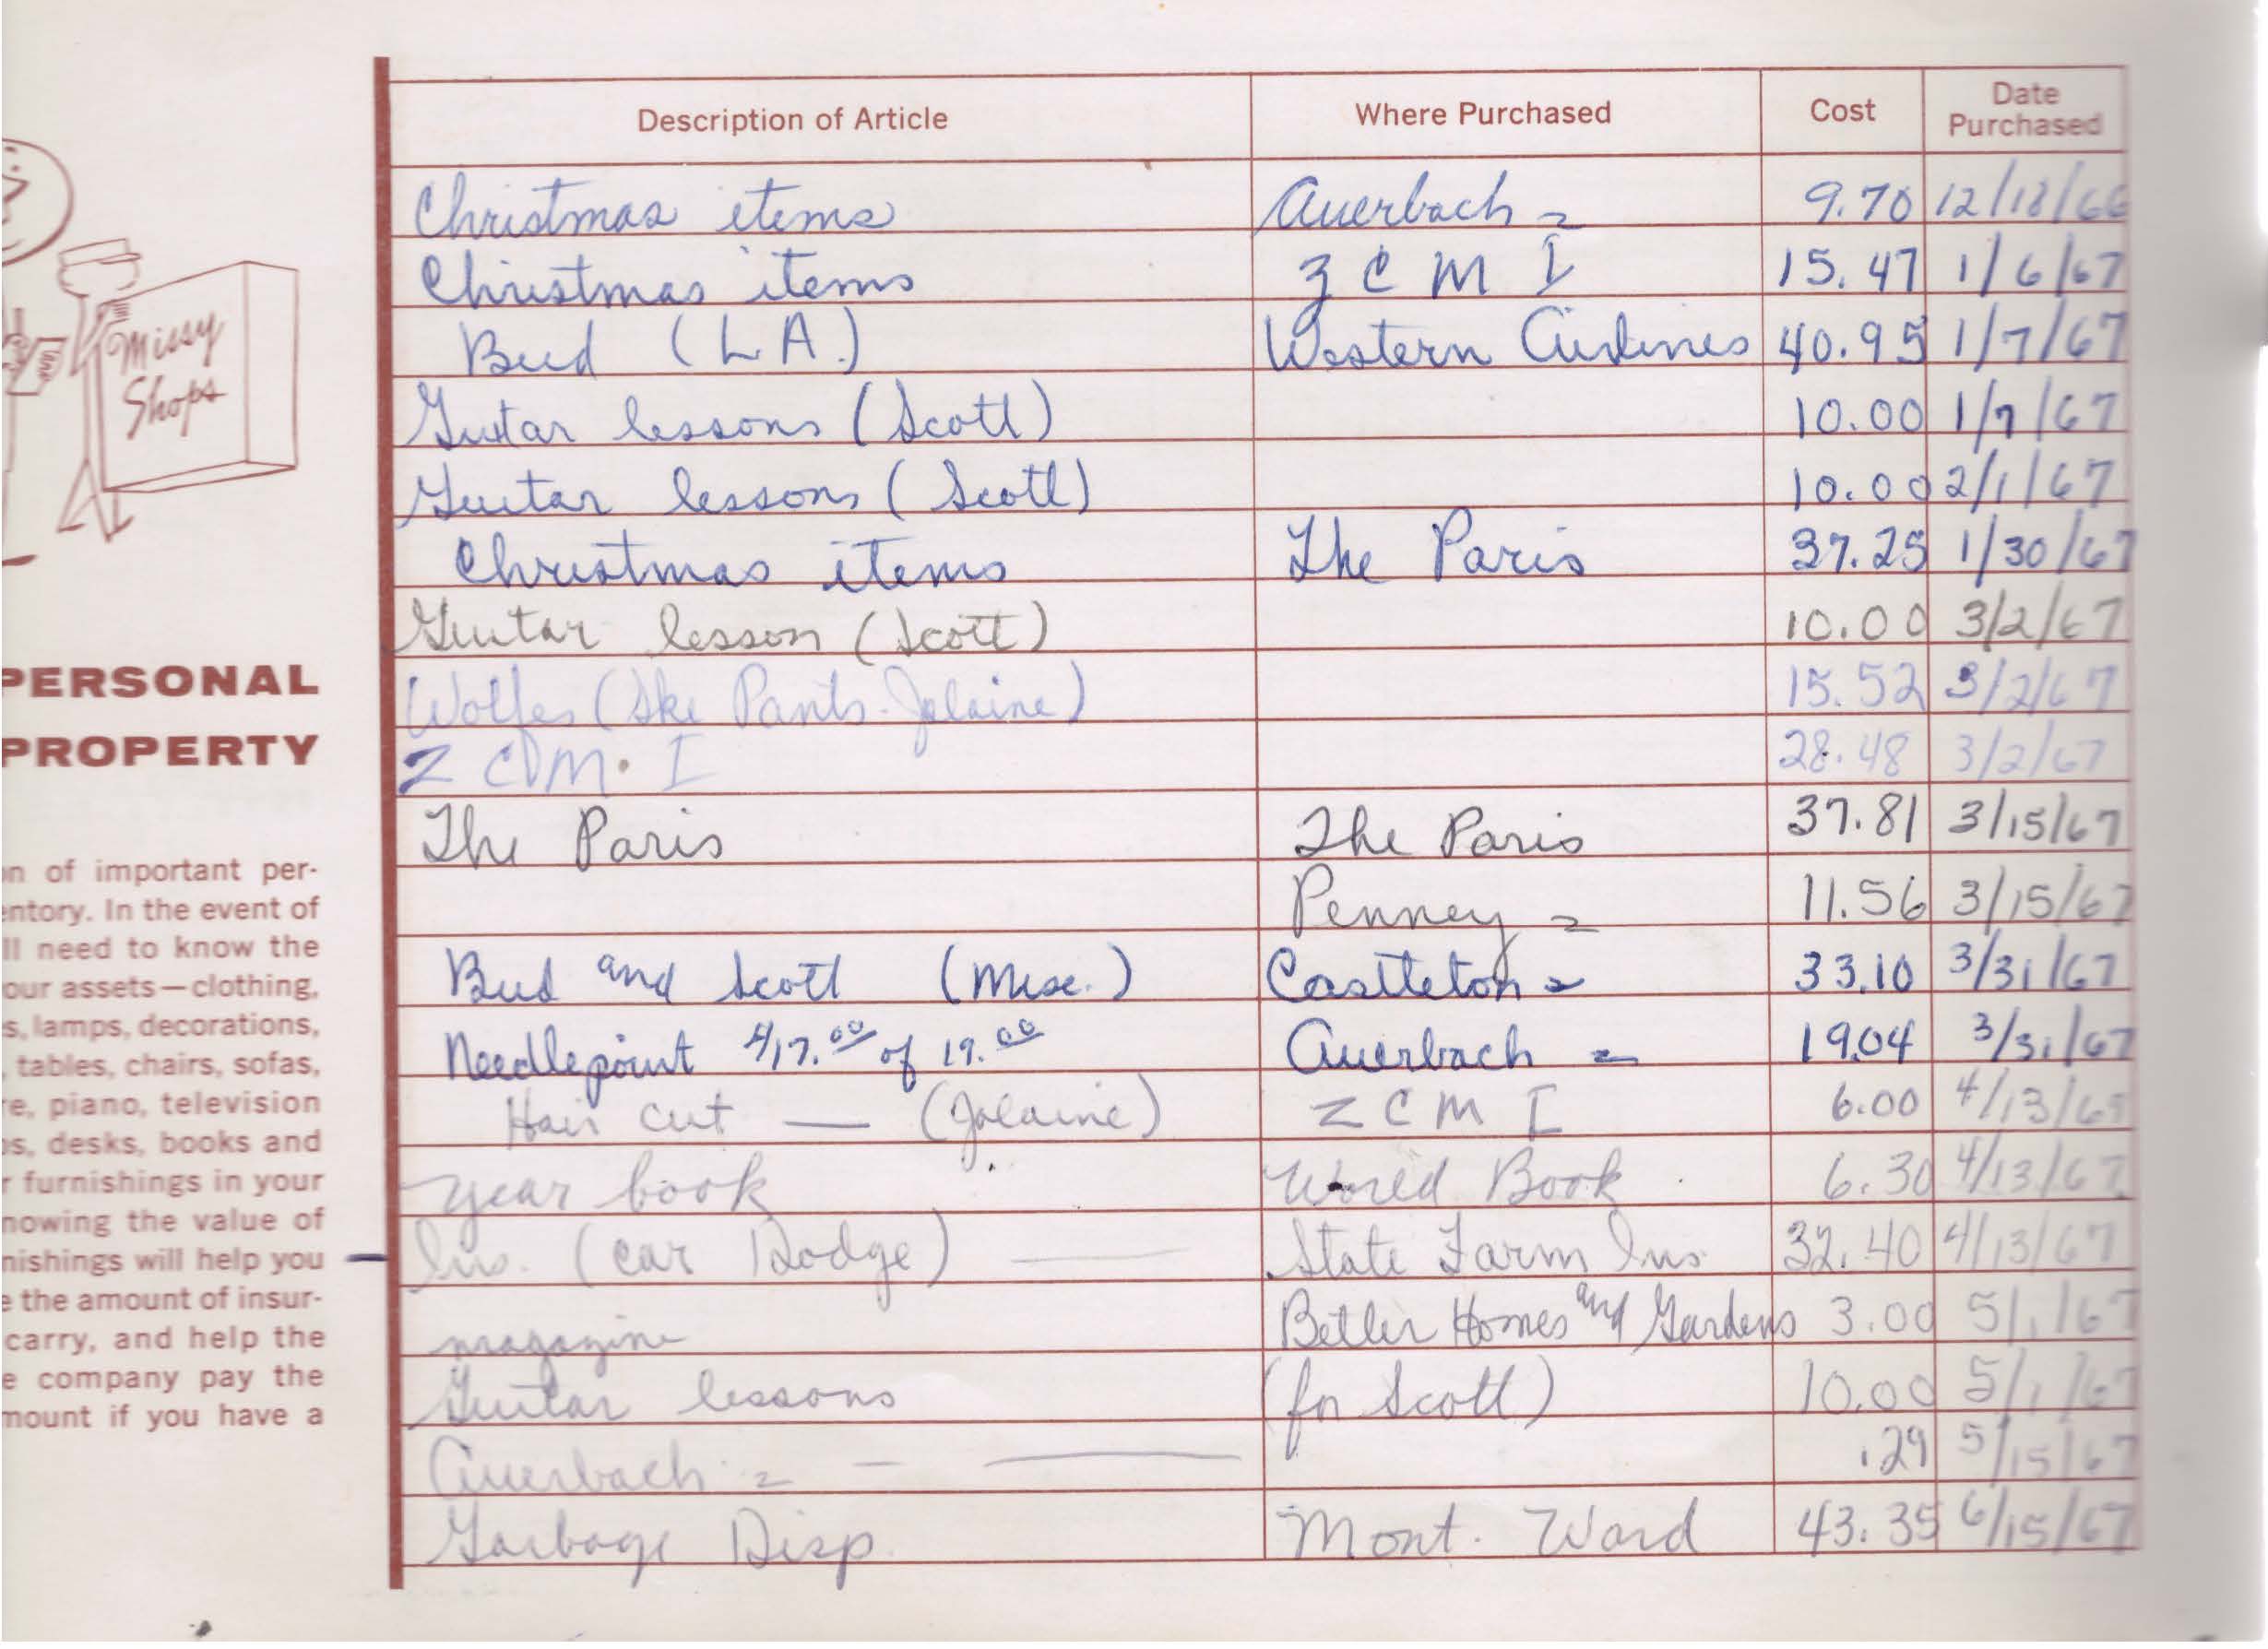 Description of Article Where Purchased Cost Date Purchased
Christmas items Auerbach = 9.70 12/18/66
Christmas items Z C M I 15.47 1/6/67
Bud (L A.) Western Airlines 40.95 1/7/67
Guitar lessons (Scott) 10.00 1/7/67
Guitar lessons (Scott) 10.00 2/1/67
Christmas items The Paris 37.25 1/30/67
Guitar lesson (Scott) 10.00 3/2/67
Wolfes (Ske Pants-Jolaine) 15.52 3/2/67
Z C M I 28.48 3/2/67
The Paris The Paris 37.81 3/15/67
Penney = 11.56 3/15/67
Bud and Scott (Misc.) Castleton = 33.10 3/31/67
Needlepoint 4/17.00 of 19.00 Auerbach = 19.04 3/31/67
Hair cut — (Jolaine) Z C M I 6.00 4/13/67
Year book World Book 6.30 4/13/67
Ins. (car Dodge) — State Farm Ins. 32.40 4/13/67
magazine Better Homes and Gardens 3.00 5/1/67
Guitar lessons (for Scott) 10.00 5/1/67
Auerbach = — — .29 5/15/67
Garbage Disp. Mont. Ward 43.35 6/15/67
Missy
Shops
PERSONAL
PROPERTY
of important per-
In the event of
need to know the
our assets—clothing,
lamps, decorations,
tables, chairs, sofas,
piano, television
desks, books and
furnishings in your
the value of
will help you
the amount of insur-
carry, and help the
company pay the
if you have a